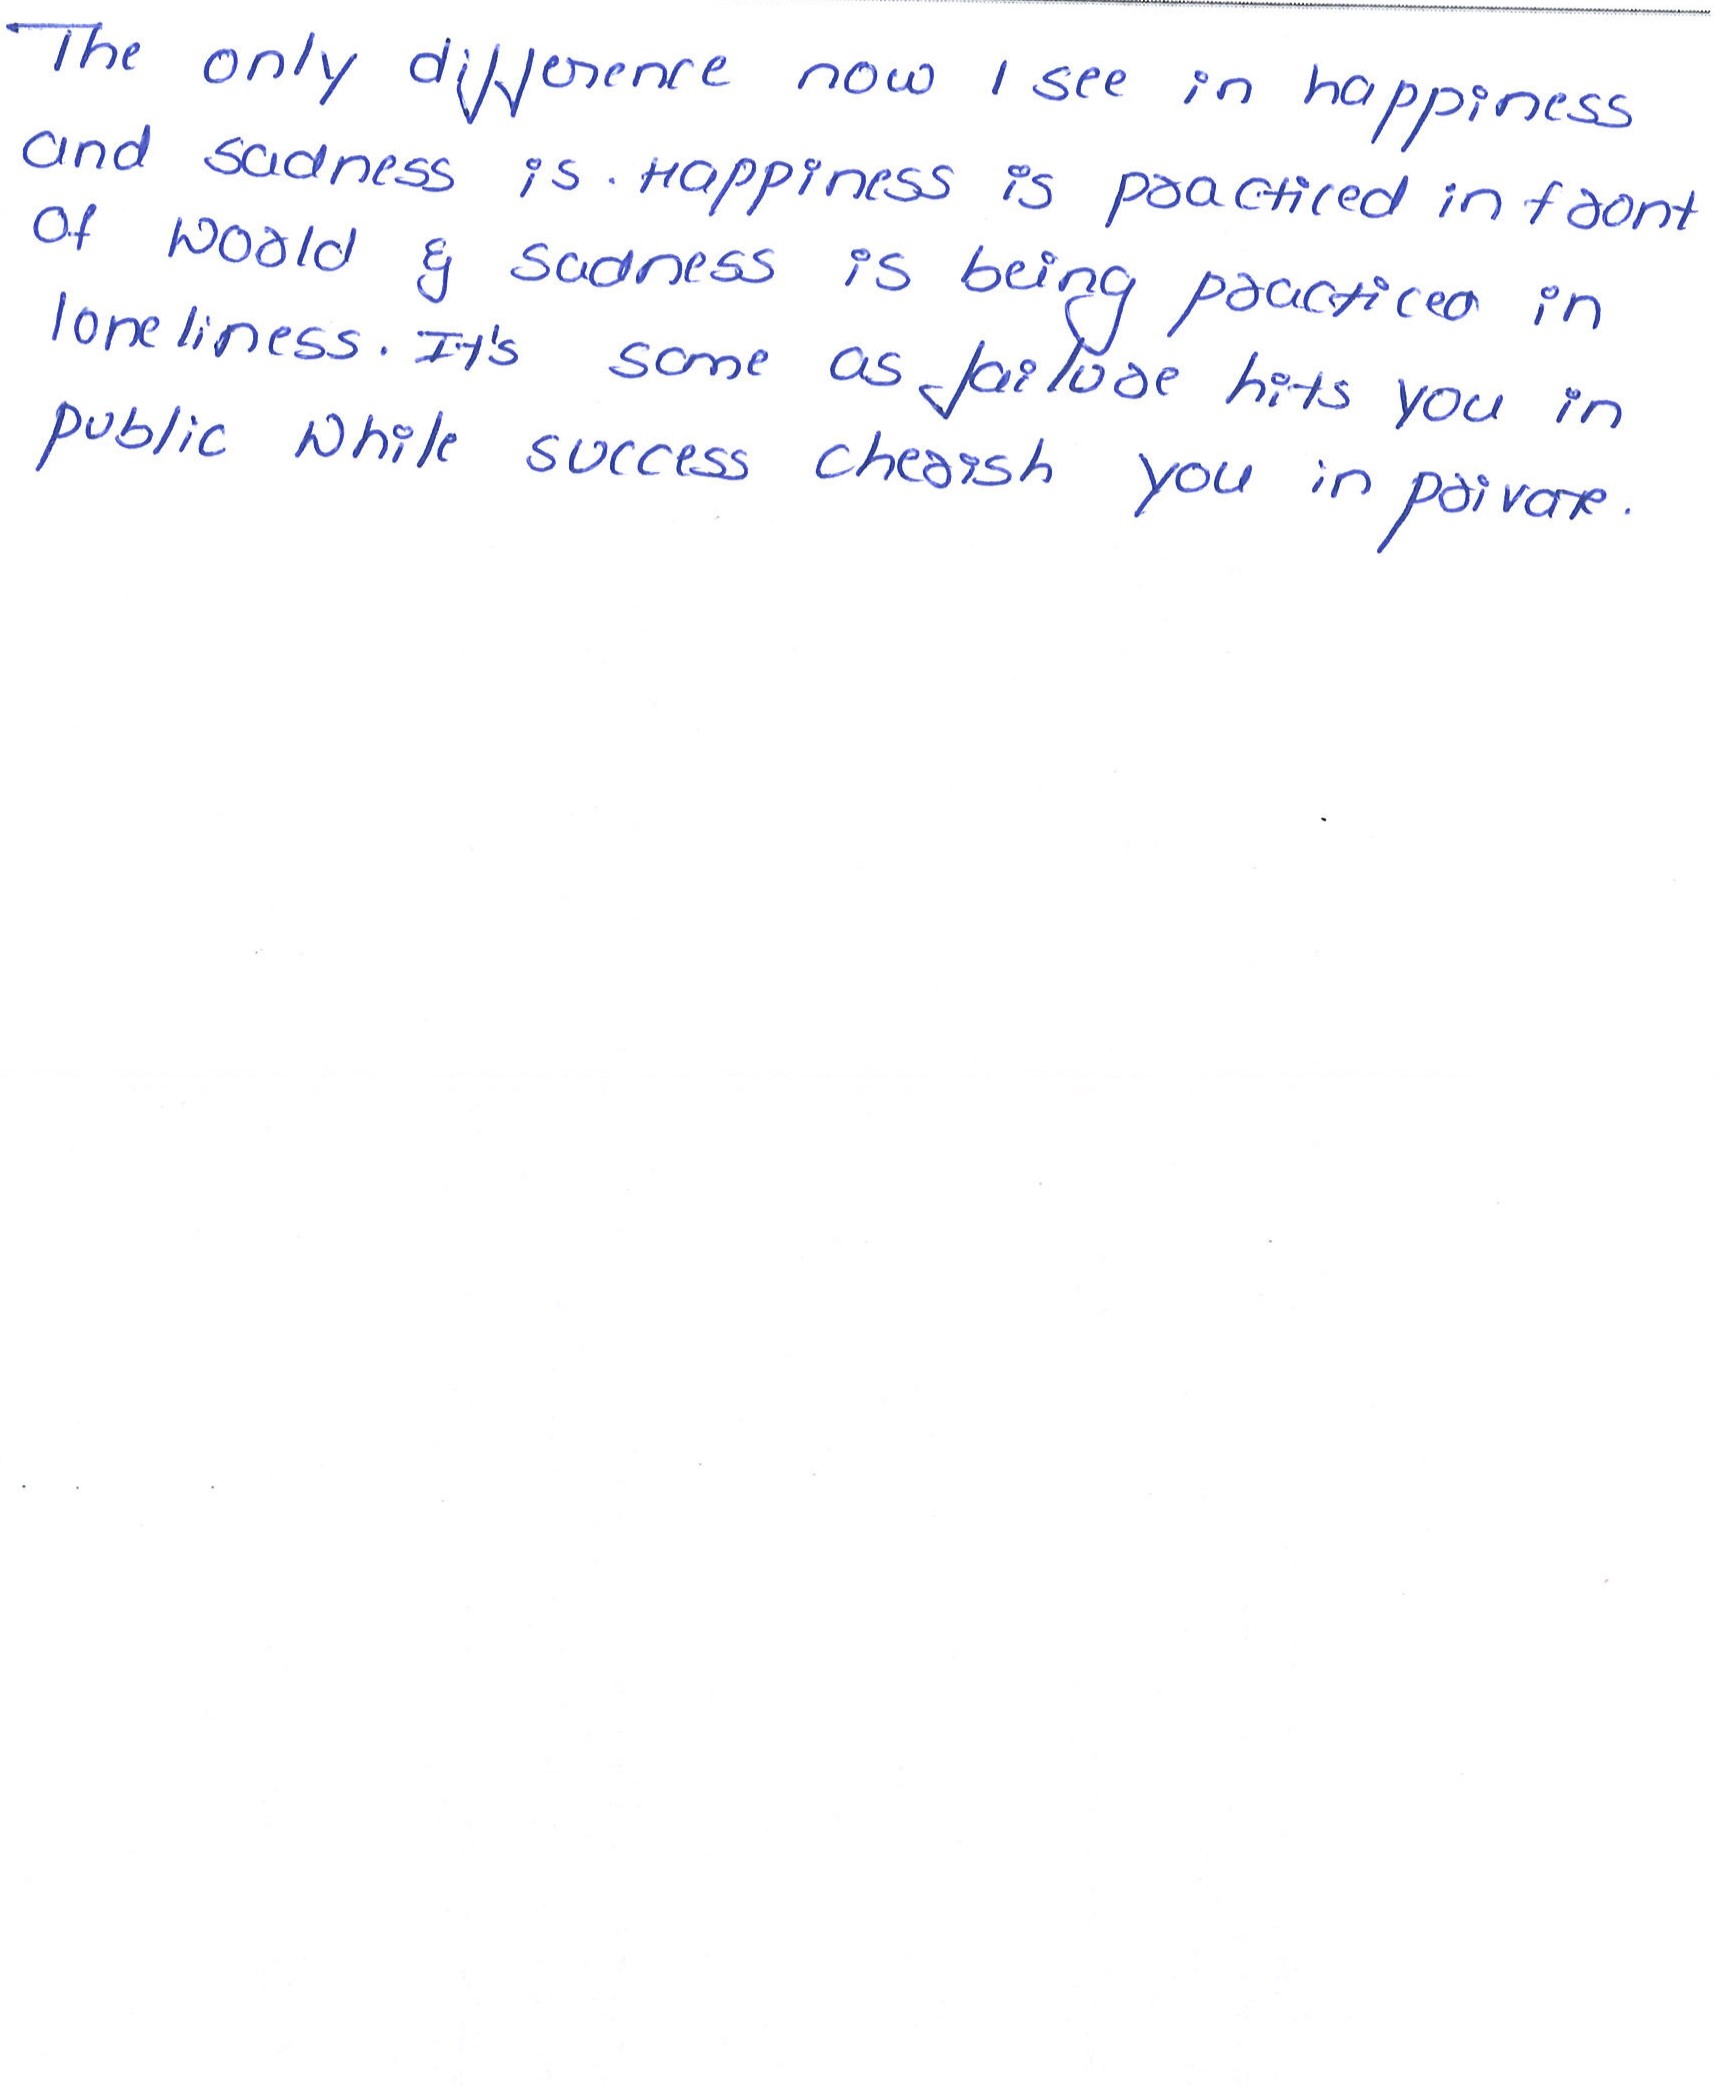 The only difference now I see in happiness
and sadness is. Happiness is practiced in front
of world & sadness is being practiced in
loneliness. It's same as failure hits you in
public while success cherish you in private.